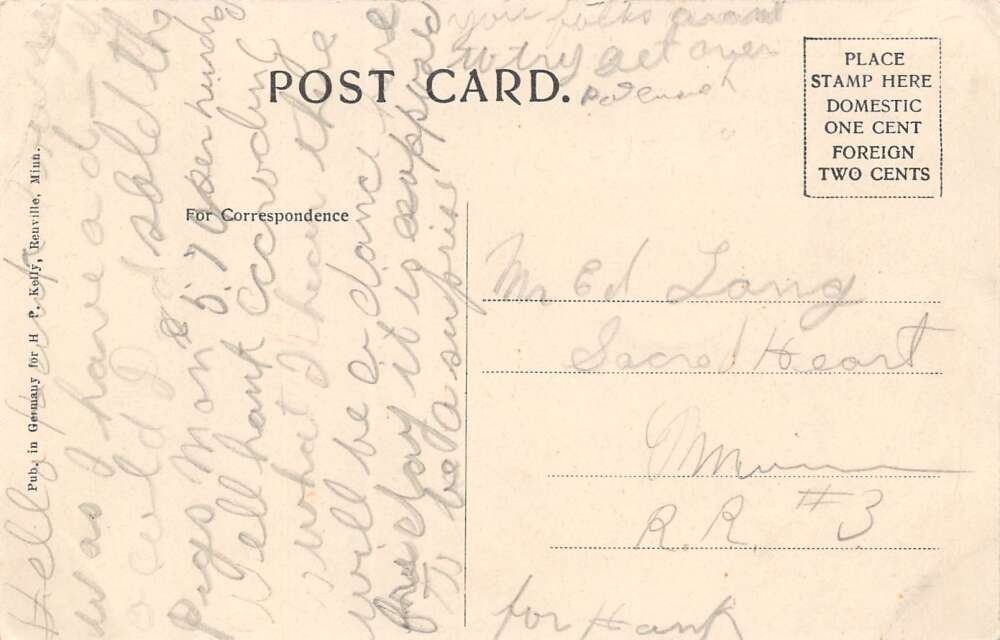 POST CARD.
PLACE
STAMP HERE
DOMESTIC
ONE CENT
FOREIGN
TWO CENTS
For Correspondence
Pub. in Germany for H P. Kelly, Renville, Minn.
Hello
was I have a
cold I sold the
pigs Mon 5.70 per hundred
Tell hank according
what I hear there
will be a dance here
friday it is supposed
to be a suprise
you folks
to try get over
Mr Ed Lang
Sacred Heart
Minn
R.R. #3
for Hank